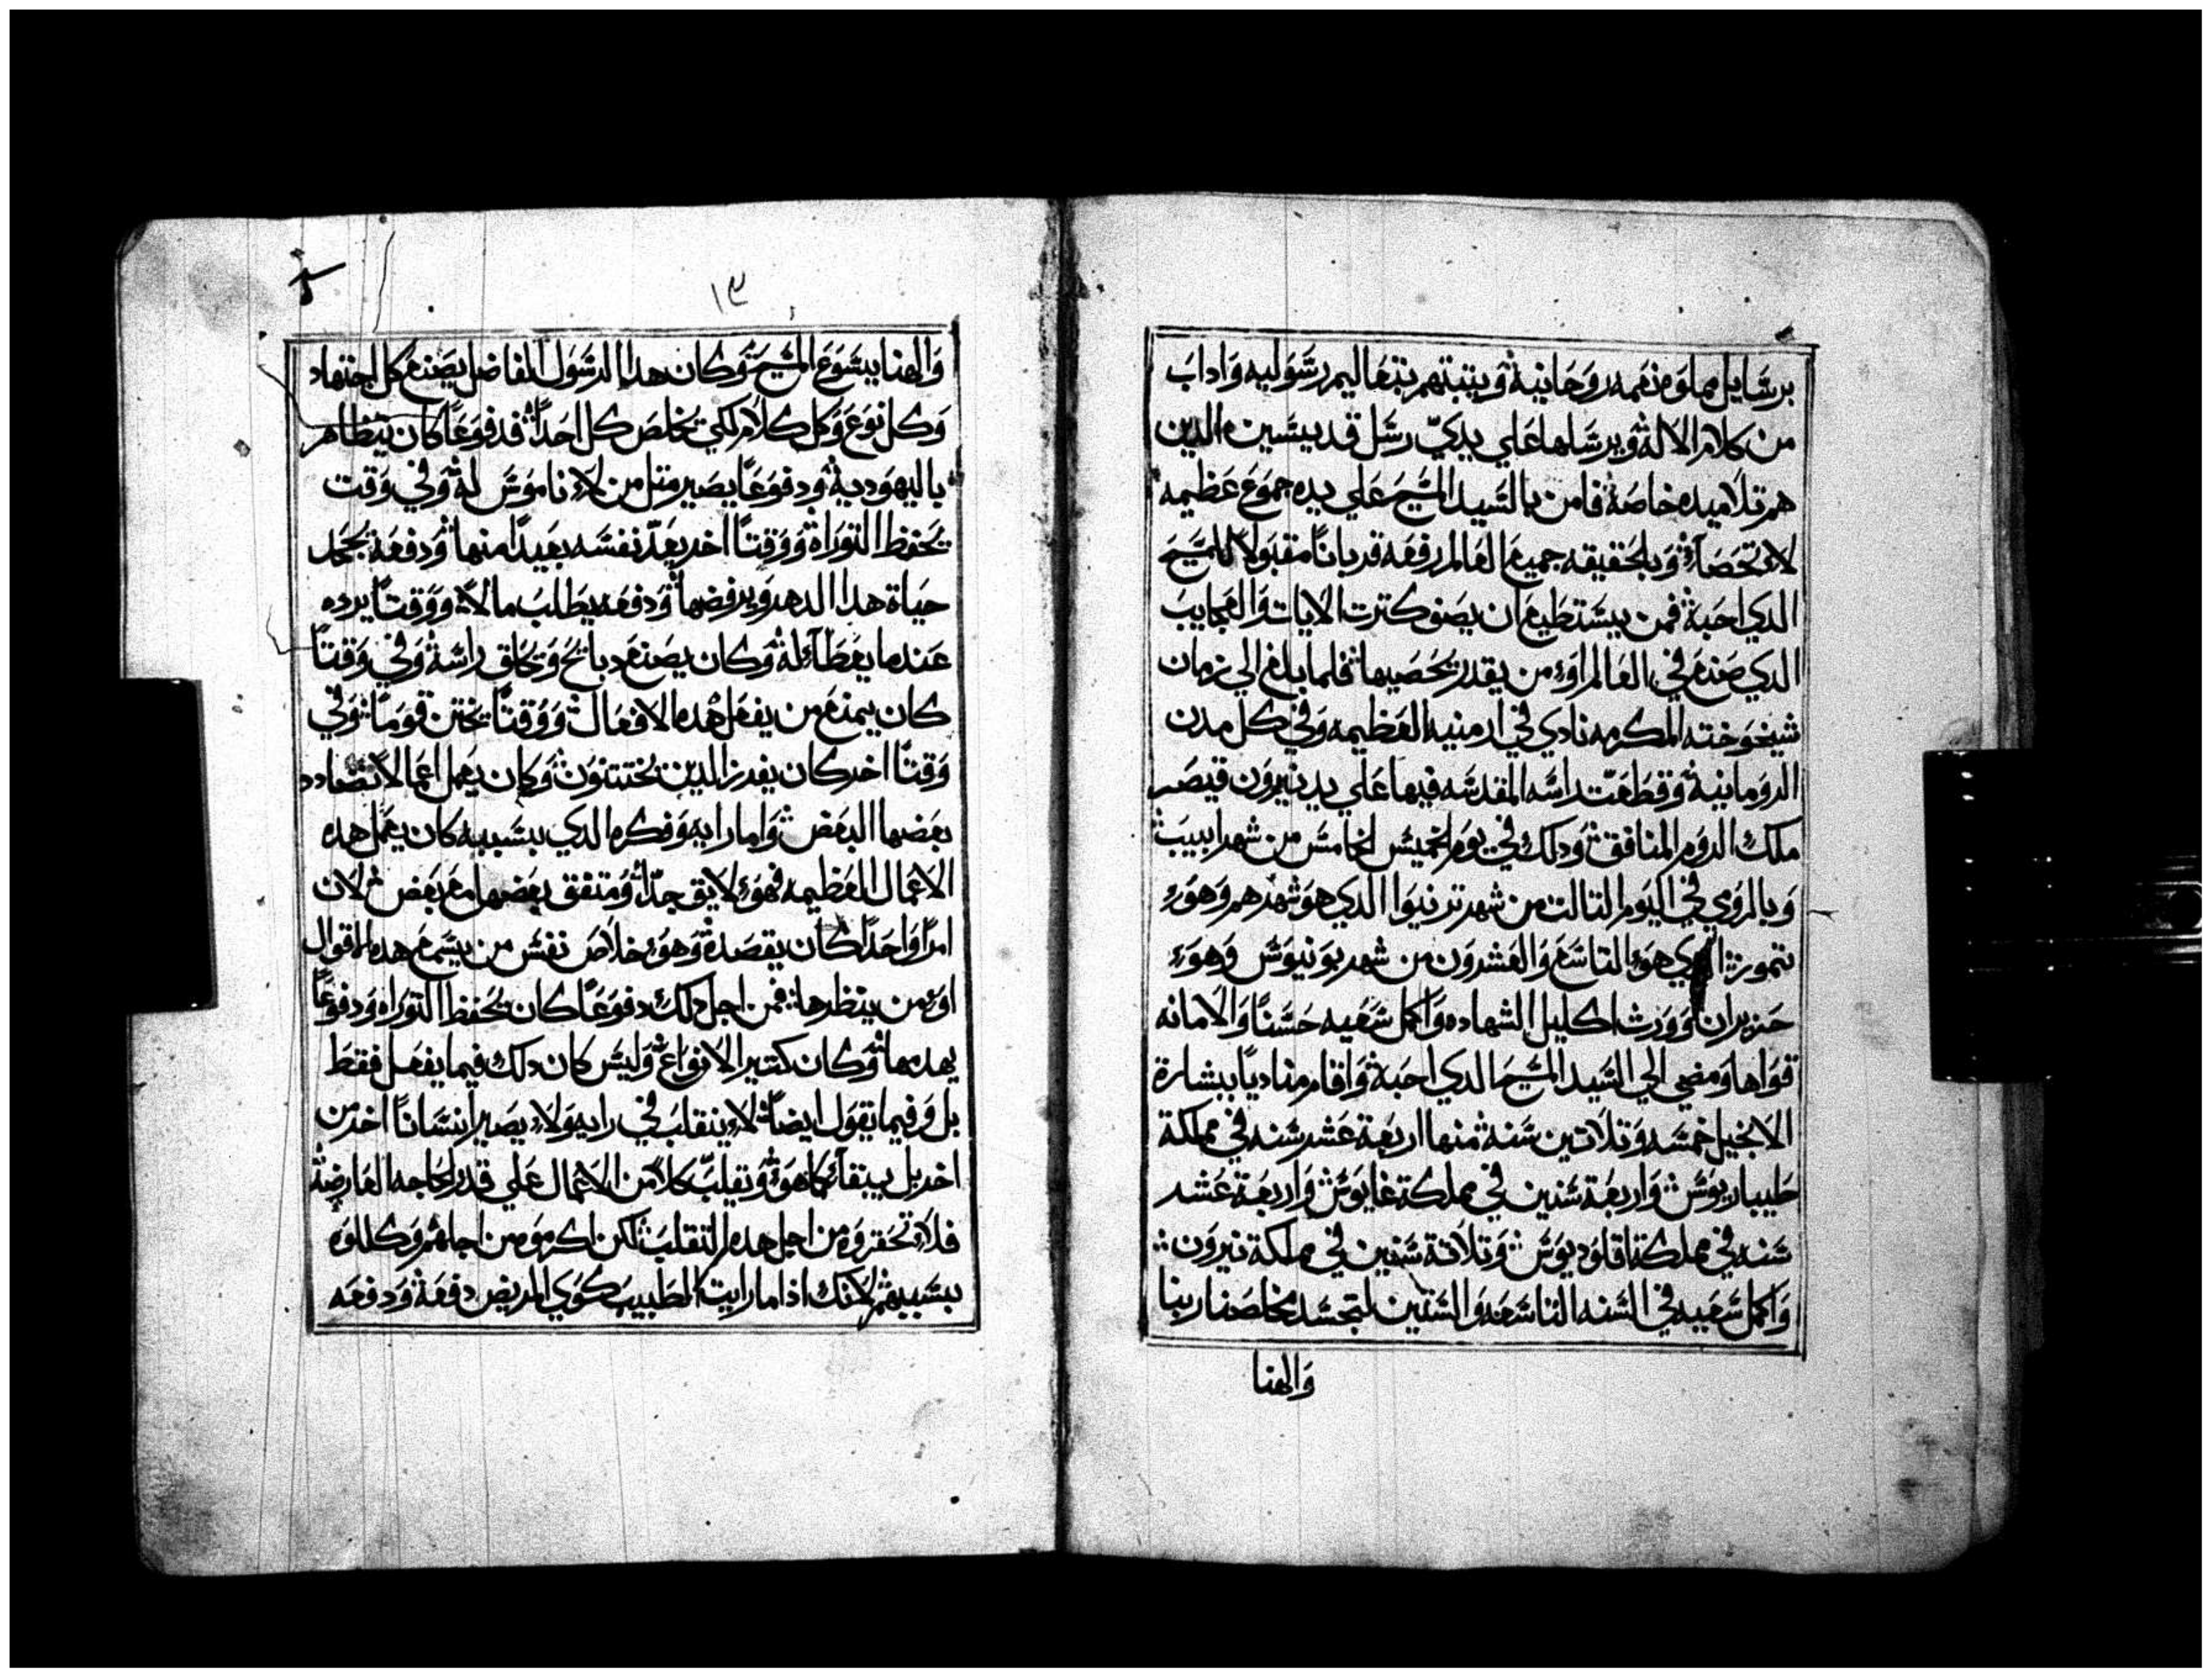 برسايل مملوه نعمه روحانية ويتبتهم بتعاليم رسوليه واداب
من كلام الاله ويرسلها علي يديّ رسل قديسين الدين
هم تلاميده خاصة فامن بالسيد المسيح علي يده جموع عظيمه
لا تحصاء وبلحقيقه جميع العالم رفعه قرباناً مقبولاً للمسيح
الدي احبة فمن يستطيع ان يصف كترت الايات والعجايب
الدي صنع في العالم اوء من يقدر يحصيها فلما بلغ الي زمان
شيخوخته المكرمه نادي في ارمنيه العظيمه وفي كل مدن
الرومانية وقطعت راسه المقدسه فيها علي يد نيرون قيصر
ملك الروم المنافق ودلك في يوم الخميس الخامس من شهر ابيب
وبالرومي في اليوم التالت من شهر ترنيوا الدي هو شهرهم وهوء
تموز الدي هوء التاسع والعشرون من شهر يونيوس وهوء
حزيران وورث اكليل الشهاده واكمل سعيه حسناً والامانه
قواها ومضي الي السيد المسيح الدي احبة واقام مناديا ببشارة
الانجيل خمسه وتلاتين سنة منها اربعة عشر سنه في مملكة
طيباريوس واربعة سنين في مملكة غايوس واربعة عشر
سنه في مملكة اقلوديوس وتلاتة سنين في مملكة نيرون
واكمل سعيه في السنه التاسعه والستين لتجسد مخلصنا ربنا
والهنا
١٣
والهنا يسوع المسيح وكان هدا الرسول الفاضل يصنع كل اجتهاد
وكل نوع وكل كلام لكي يخلص كل احداً فدفوعاً كان يتظاهر
باليهودية ودفوعاً يصير متل من لاء ناموس له وفي وقت
يحفظ التوراة ووقتاً اخر يعدّ نفسه بعيداً منها ودفعة يحمد
حياة هدا الدهر ويرفضها ودفعه يطلب مالاً ووقتاً يرده
عندما يعطاء له وكان يصنع دبايح ويحلق راسة وفي وقتاً
كان يمنع من يفعل هده الافعال ووقتاً يختن قوماً وفي
وقتاً اخر كان يفرز الدين يختتنون وكان يعمل اعمالاً تضادد
بعضها البعض واما رايه وفكره الدي بسببه كان يعمل هده
الاعمال العظيمه فهوء لايق جدّاً ومتفق بعضها مع بعض لان
امراً واحداً كان يقصدة وهوء خلاص نفس من يسمع هده الاقوال
اوء من ينظرها فمن اجل دلك دفوعاً كان يحفظ التوراه ودفوعاً
يهدمها وكان كتير الانواع وليس كان دلك فيما يفعل فقط
بل وفيما يقول ايضاً لاء ينقلب في رايه ولاء يصير انساناً اخر من
اخر بل يبقاء كما هوء ويقلبّ كلاً من الاعمال علي قدر الحاجه العارضة
فلاء تحقروه من اجل هده التقلب لكن اكرموه من اجلهم وكللوه
بسببهم لانك ادا ما رايت الطبيب يكوي المريض دفعة ودفعه